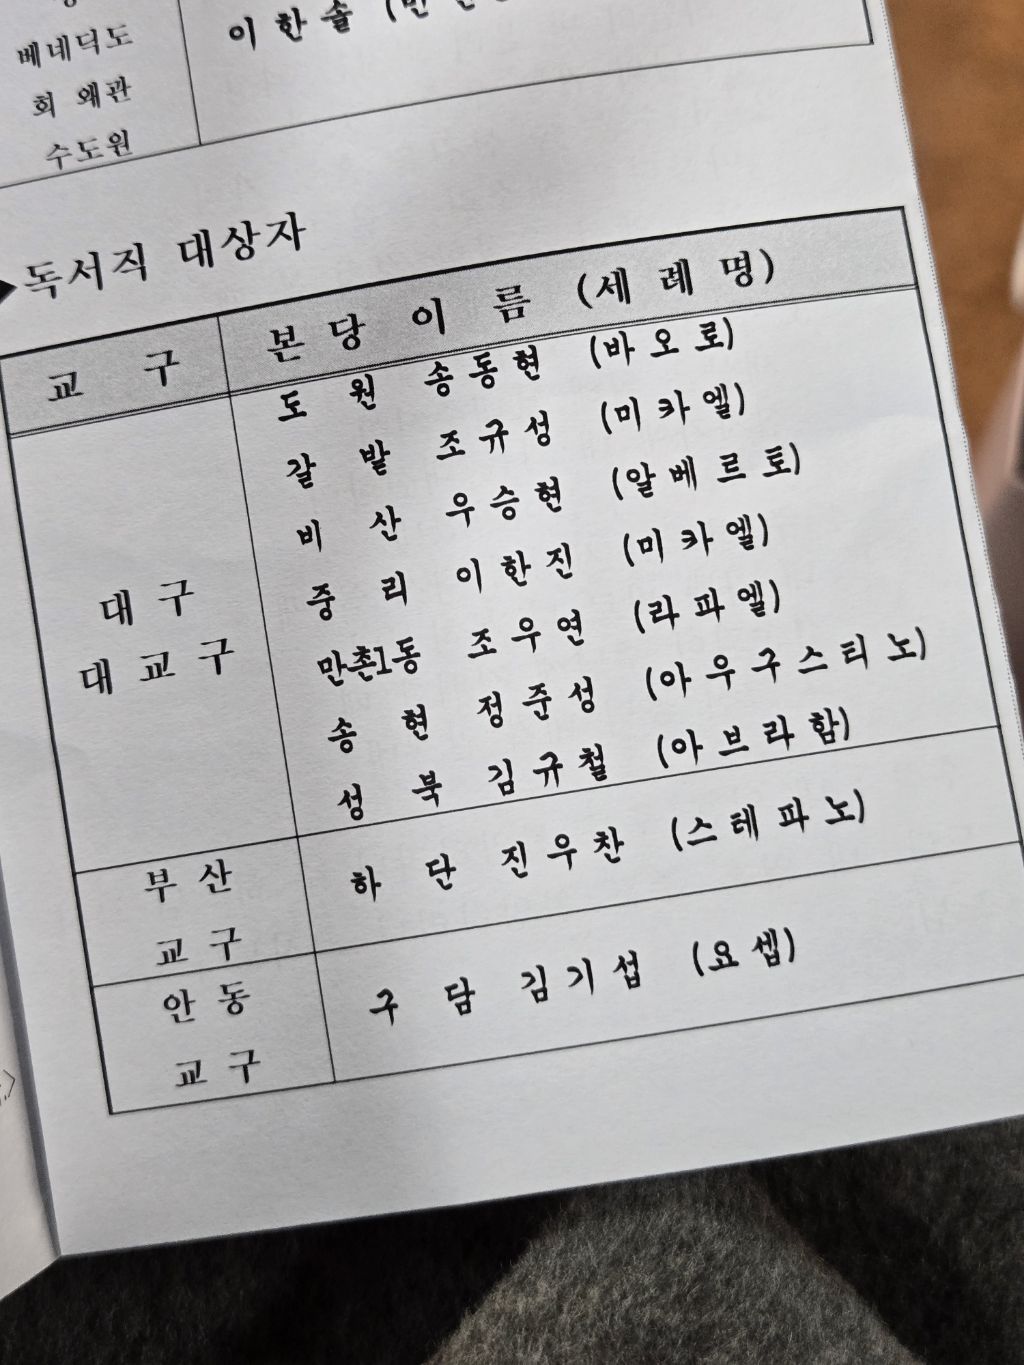 베네딕도
회 왜관
수도원
이한솔
독서직 대상자
교 구 본당 이 름 (세 례 명)
대구
대교구
도 원 송동현 (바오로)
갈 밭 조규성 (미카엘)
비 산 우승현 (알베르토)
중 리 이한진 (미카엘)
만촌1동 조우연 (라파엘)
송 현 정준성 (아우구스티노)
성 북 김규철 (아브라함)
부산
교구
하 단 진우찬 (스테파노)
안동
교구
구 담 김기섭 (요셉)